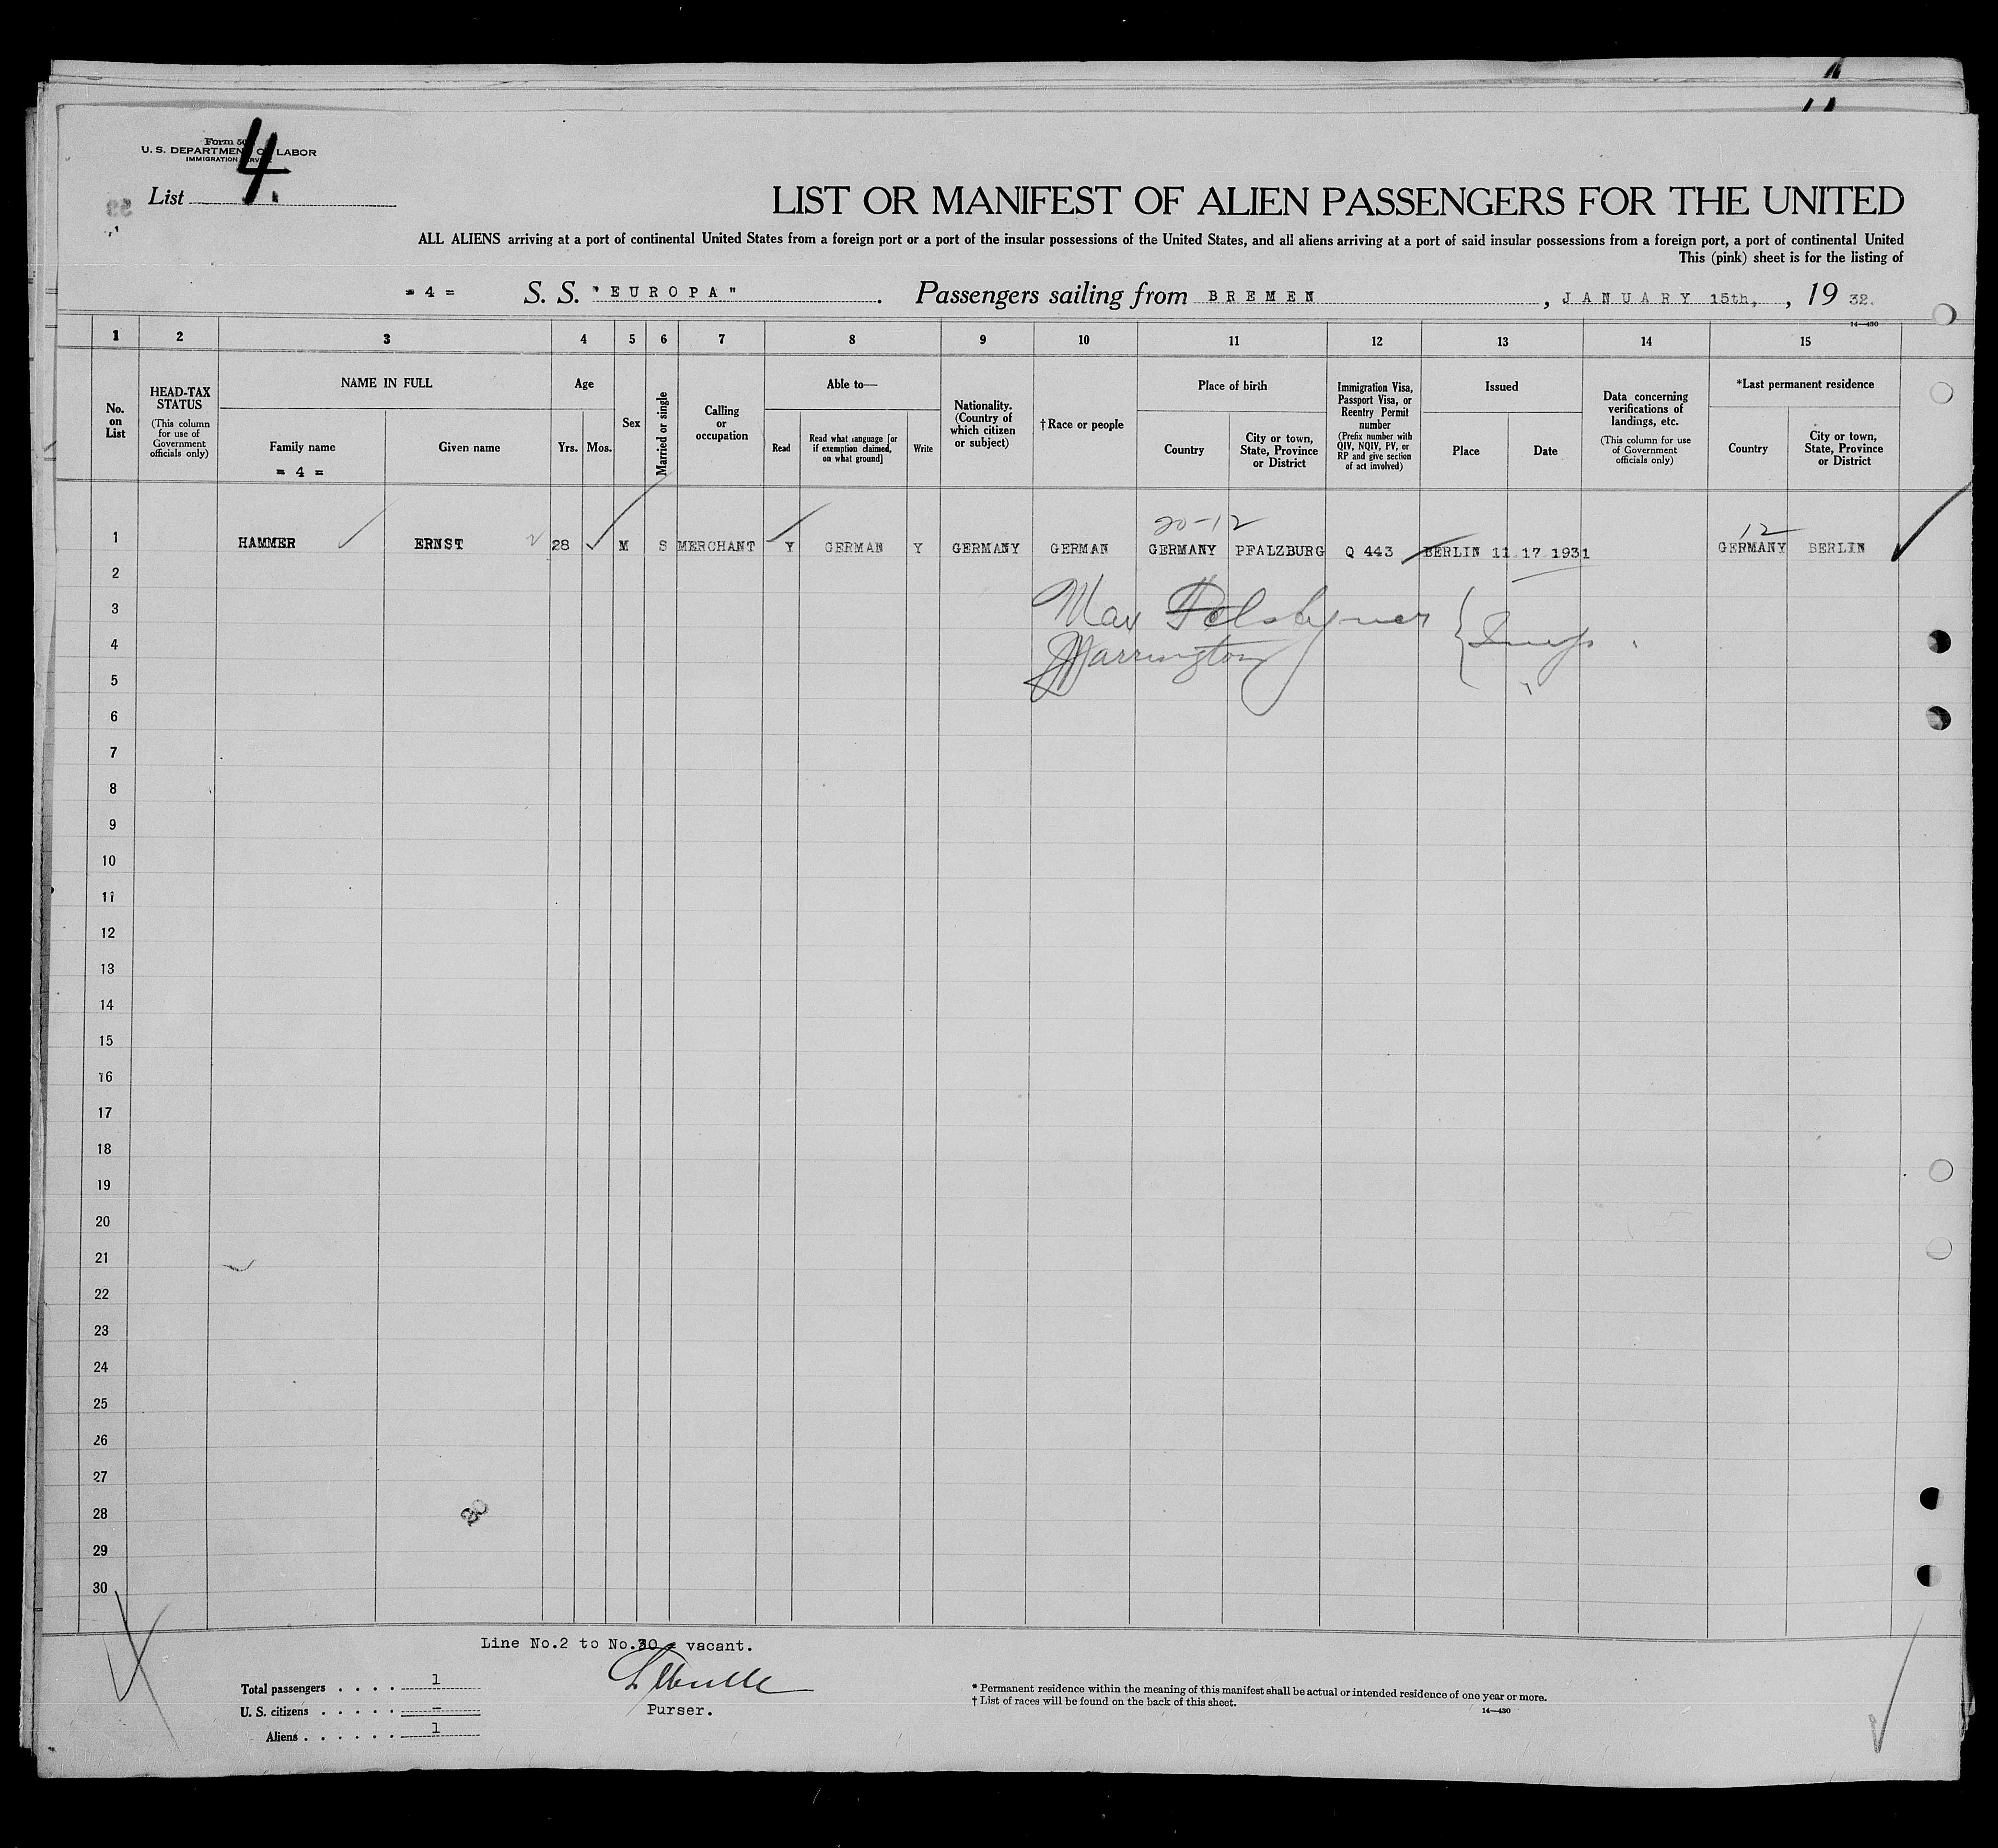 Form 50
U. S. DEPARTMENT OF LABOR
IMMIGRATION SERVICE
List 4.
LIST OR MANIFEST OF ALIEN PASSENGERS FOR THE UNITED
ALL ALIENS arriving at a port of continental United States from a foreign port or a port of the insular possessions of the United States, and all aliens arriving at a port of said insular possessions from a foreign port, a port of continental United
This (pink) sheet is for the listing of
= 4 = S. S. "EUROPA". Passengers sailing from BREMEN, JANUARY 15th, , 19 32.
14—430
1 2 3 4 5 6 7 8 9 10 11 12 13 14 15
No. on List
HEAD-TAX STATUS (This column for use of Government officials only)
NAME IN FULL
Family name
= 4 =
Given name
Age
Yrs. Mos.
Sex
Married or single
Calling or occupation
Able to—
Read
Read what language [or if exemption claimed, on what ground]
Write
Nationality. (Country of which citizen or subject)
†Race or people
Place of birth
Country
City or town, State, Province or District
Immigration Visa, Passport Visa, or Reentry Permit number (Prefix number with QIV, NQIV, PV, or RP and give section of act involved)
Issued
Place
Date
Data concerning verifications of landings, etc. (This column for use of Government officials only)
*Last permanent residence
Country
City or town, State, Province or District
20-12
12
1 HAMMER ERNST 28 M S MERCHANT Y GERMAN Y GERMANY GERMAN GERMANY PFALZBURG Q 443 BERLIN 11 17 1931 GERMANY BERLIN
2
3 Max
4 Harrington
5
6
7
8
9
10
11
12
13
14
15
16
17
18
19
20
21
22
23
24
25
26
27
28
29
30
Line No.2 to No.30 = vacant.
Purser.
Total passengers . . . . 1
U. S. citizens . . . . . —
Aliens . . . . . . 1
* Permanent residence within the meaning of this manifest shall be actual or intended residence of one year or more.
† List of races will be found on the back of this sheet.
14—430